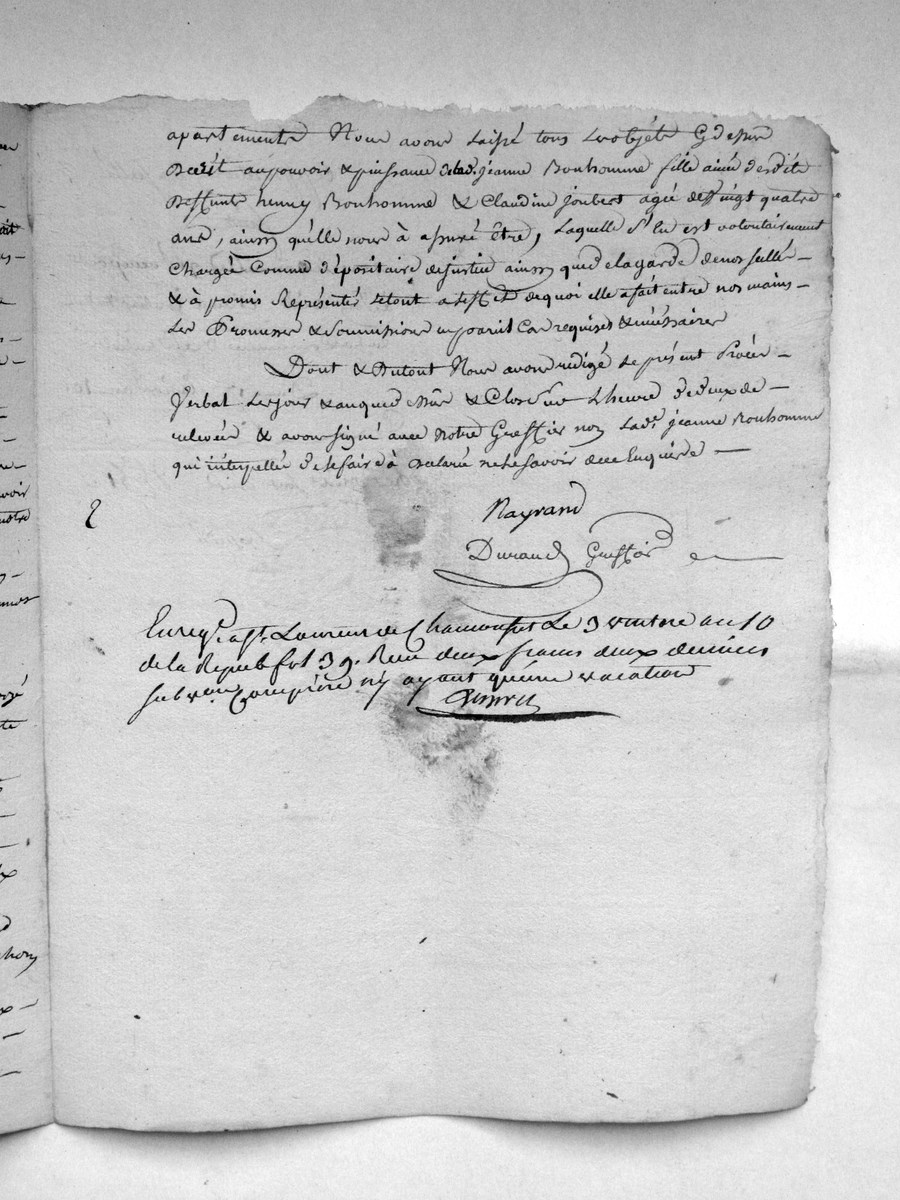 apartements Nous avons laissé tous les objets Cy dessus
Décrit au pouvoir & puissance de lad. jeanne Bonhomme fille ainée desdits
Deffunts henry Bonhomme & Claudine joubert agée de Vingt quatre
ans, ainsy qu'elle nous à assuré être, Laquelle S'en est volontairement
Chargée Comme dépositaire de justice ainsy que de la garde de nos scellés –
& à promis Représenter le tout a l'effet de quoi elle a fait entre nos mains –
Les Promesses & Soumissions en pareil Cas requises & nécéssaires
Dont & Dutout Nous avons rédigé le présent Procès –
Verbal Les jour & an que dessus & Clos sur L'heure de deux de –
relevée & avons signé avec Notre Greffier non Lad. jeanne Bonhomme
qui interpellée de le faire à déclaré ne le savoir de ce Enquise –
2
Nayrand
Durand Greffier
Enreg. a St. Laurent de Chamousset Le 3 ventose an 10
de la Repub fol 39. Reçu deux francs deux decimes
subvon Comprise n'y ayant qu'une vacation